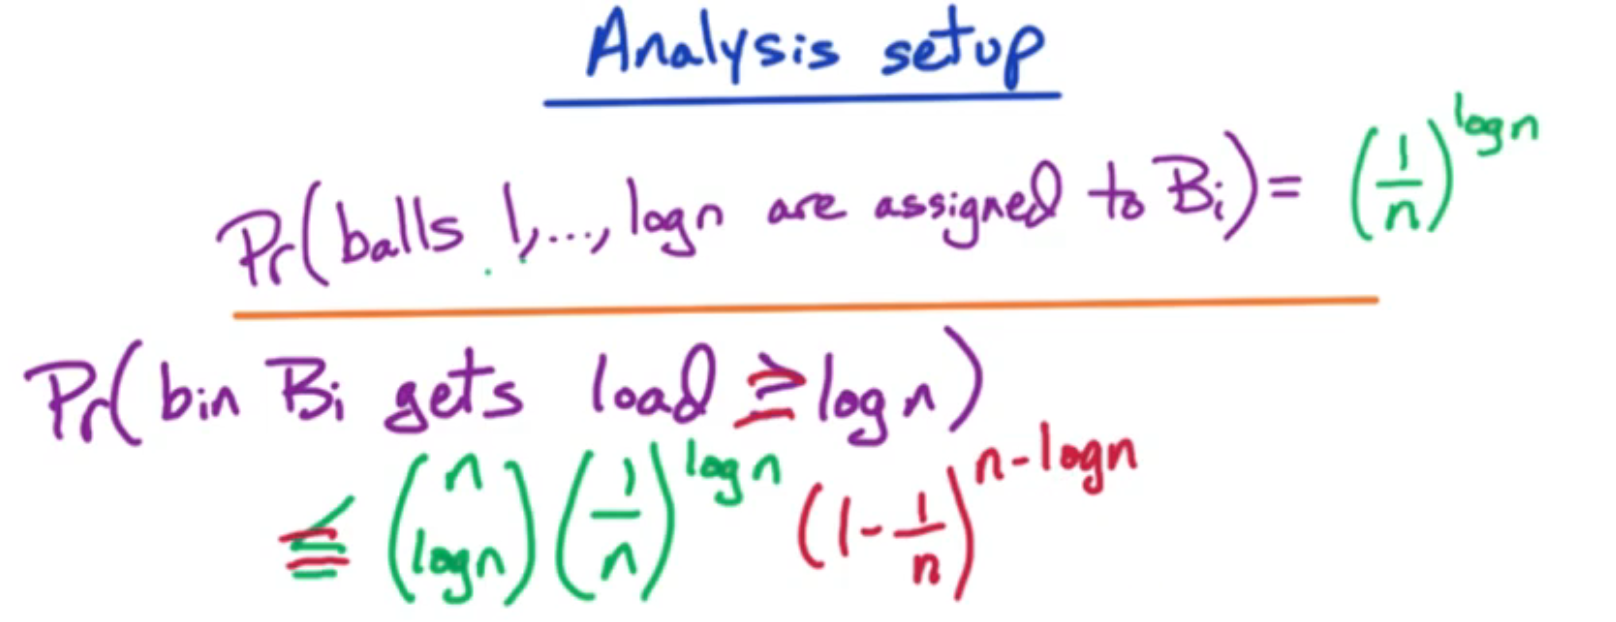 Analysis setup
Pr(balls 1,...,log n are assigned to Bi) = (1/n)^log n
Pr(bin Bi gets load ≥ log n)
≤ (n log n) (1/n)^log n (1 - 1/n)^n - log n